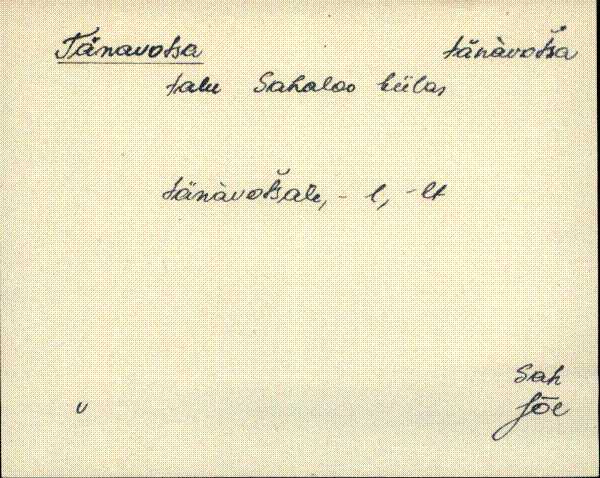 Tänavotsa tänàvotša
talu Sahaloo külas
tänàvotšale, - l, - lt
Sah
v Jõe